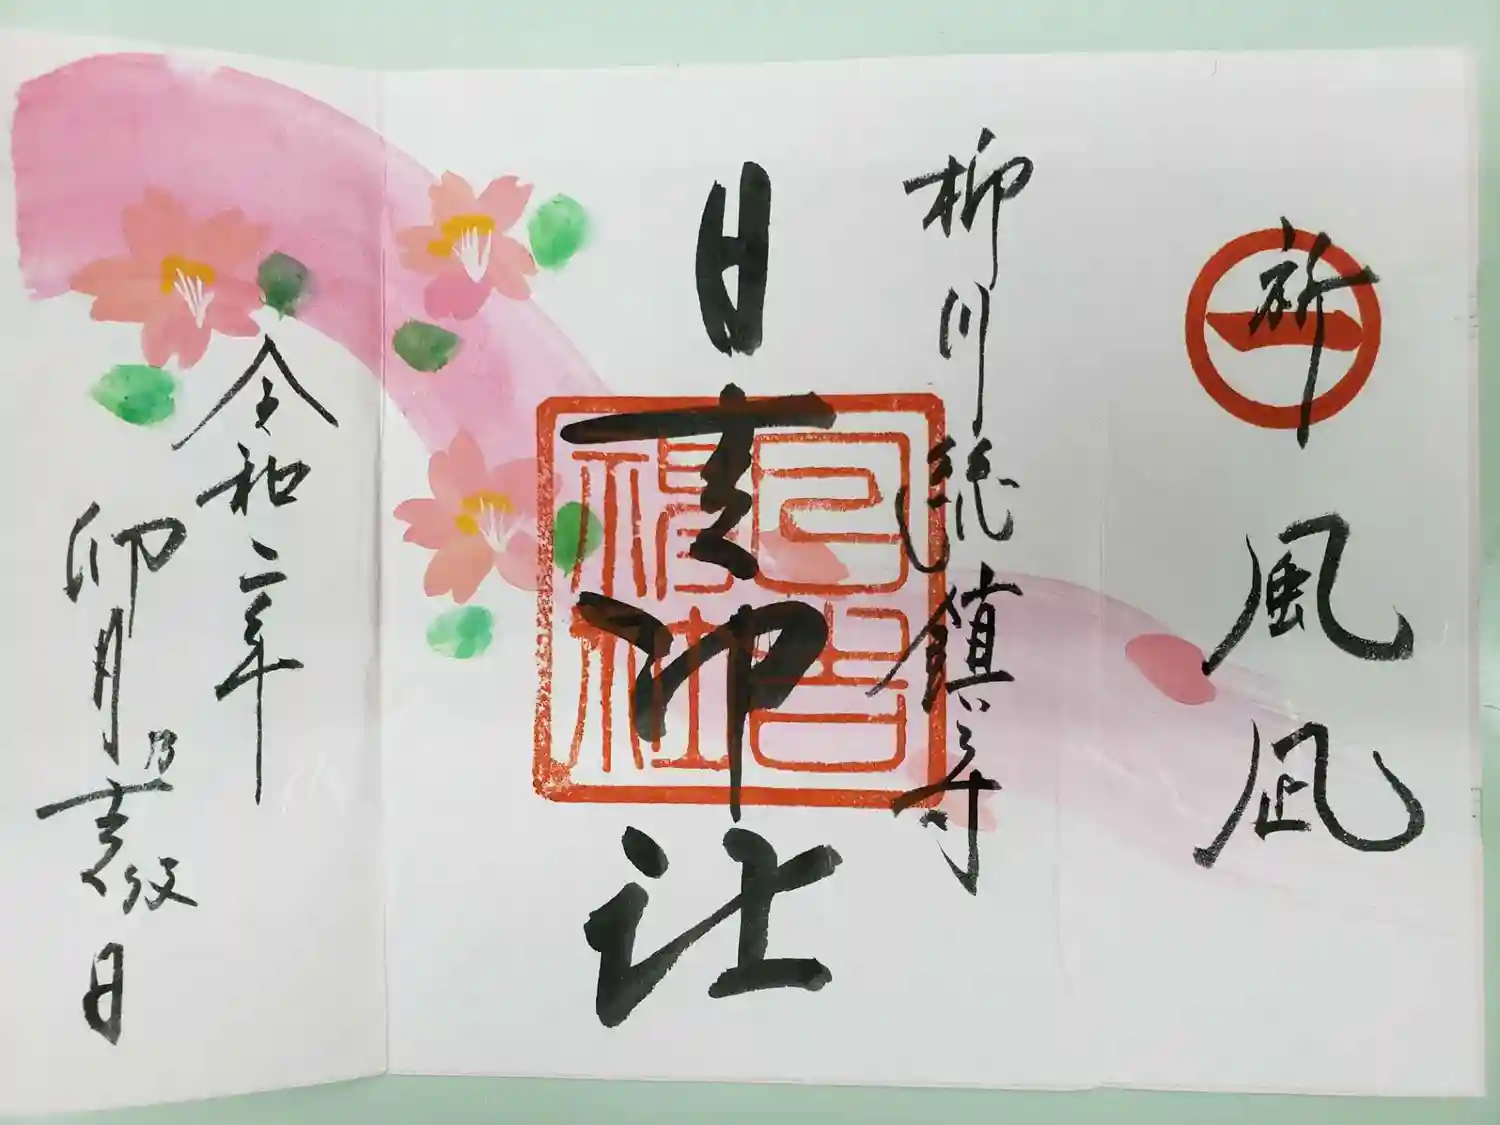 祈
風凪
柳川総鎮守
日吉神社
日吉神社
令和二年
卯月乃吉
日